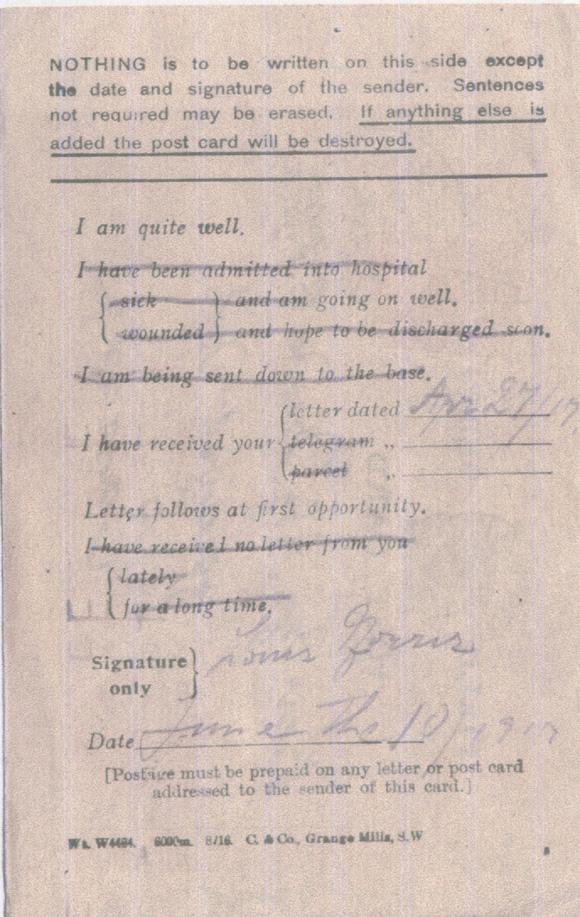 NOTHING is to be written on this side except
the date and signature of the sender. Sentences
not required may be erased. If anything else is
added the post card will be destroyed.
I am quite well.
I have been admitted into hospital
sick and am going on well.
wounded and hope to be discharged soon.
I am being sent down to the base.
letter dated Apr 27/17
I have received your telegram ,,
parcel ,,
Letter follows at first opportunity.
I have received no letter from you
lately
for a long time.
Signature only Louis
Date June the 10/1917
[Postage must be prepaid on any letter or post card
addressed to the sender of this card.]
Wt. W4494. 6000m. 8/16. C. & Co., Grange Mills, S.W